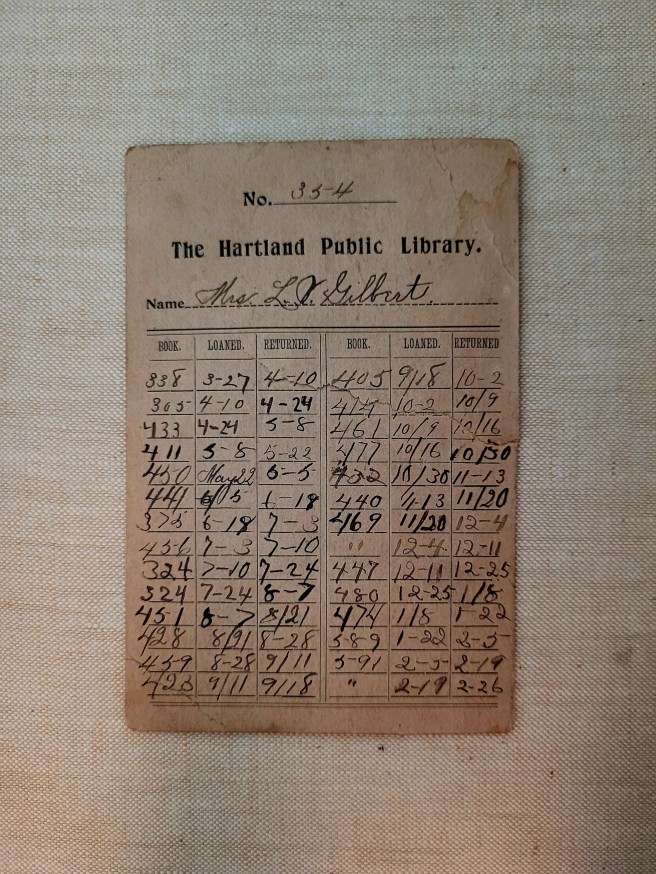 No. 354
The Hartland Public Library.
Name Mrs. L. V. Gilbert.
BOOK. LOANED. RETURNED. BOOK. LOANED. RETURNED
338 3-27 4-10 405 9/18 10-2
305 4-10 4-24 10-2 10/9
433 4-24 5-8 461 10/9 10/16
411 5-8 5-22 477 10/16 10/30
450 May 22 6-5 432 10/30 11-13
441 6/05 6-18 440 11/20
375 6-18 7-3 469 11/20 12-4
456 7-3 7-10 " 12-4 12-11
324 7-10 7-24 447 12-11 12-25
324 7-24 8-7 480 12-25 1/8
451 8-7 8/21 474 1/8 1-22
428 8/21 8-28 589 1-22 2-5
459 8-28 9/11 591 2-5 2-19
423 9/11 9/18 " 2-19 2-26